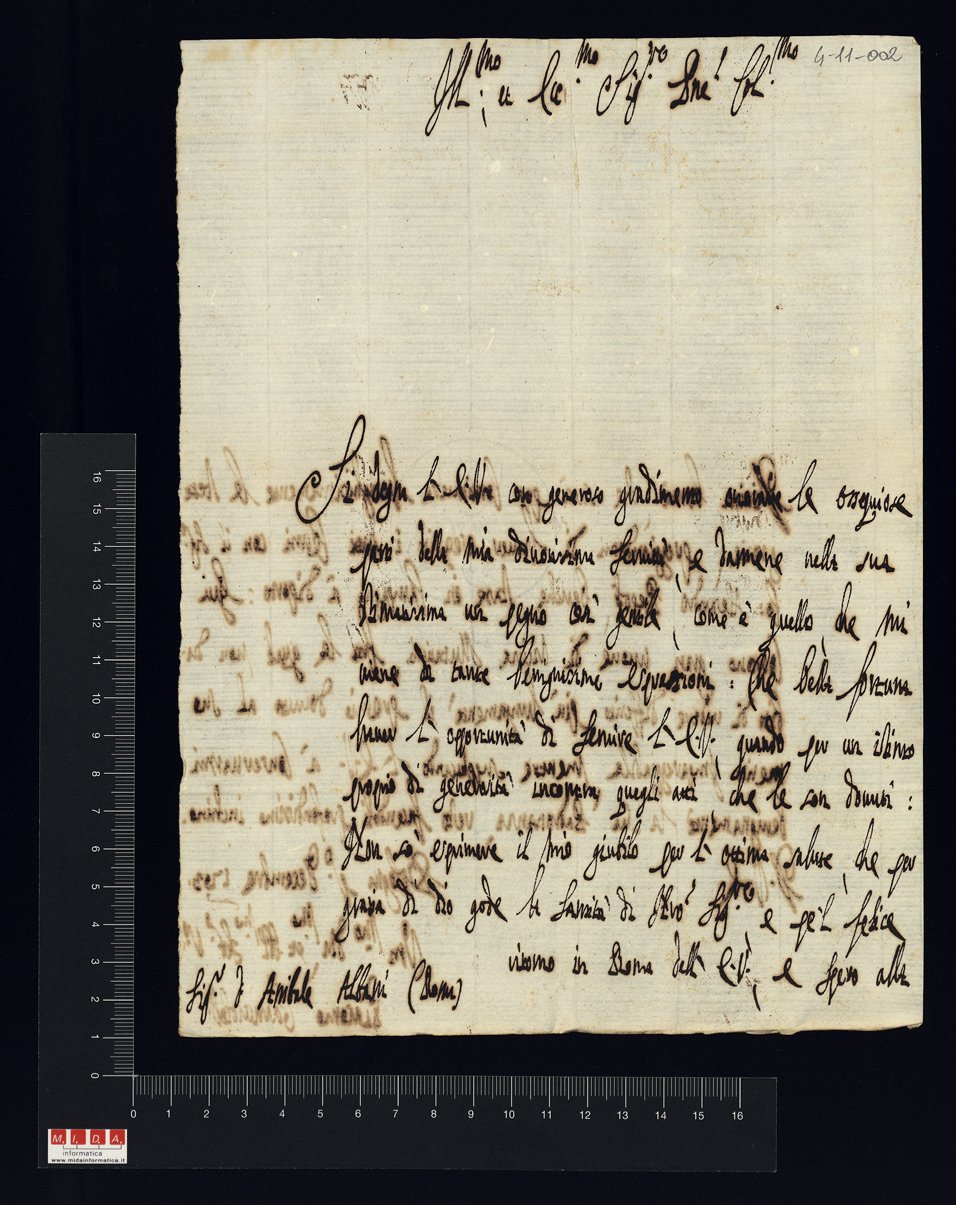 4-11-002
Ill.mo et Ecc.mo Sig.re Pne' Col.mo
Si degna l'E.Vra con generoso gradimento le ossequiose
della mia divotissima servitù, e darmene nella sua
stimatissima un pegno così gentile, come è quello, che mi
viene da tante benignissime espressioni: Che bella fortuna
l'opportunità di servire l'E.V., quando per un istinto
proprio di generosità incontra quegli atti, che le son dovuti:
Non sò esprimere il mio giubilo per l'ottima salute, che per
grazia di Dio gode la Santità di Nro' Sig.re, e pe'l felice
ritorno in Roma dell'E.V., e spero alla
Sig.r D Anibale Albani (Roma)
0 1 2 3 4 5 6 7 8 9 10 11 12 13 14 15 16
0 1 2 3 4 5 6 7 8 9 10 11 12 13 14 15 16
M. I. D. A.
informatica
www.midainformatica.it